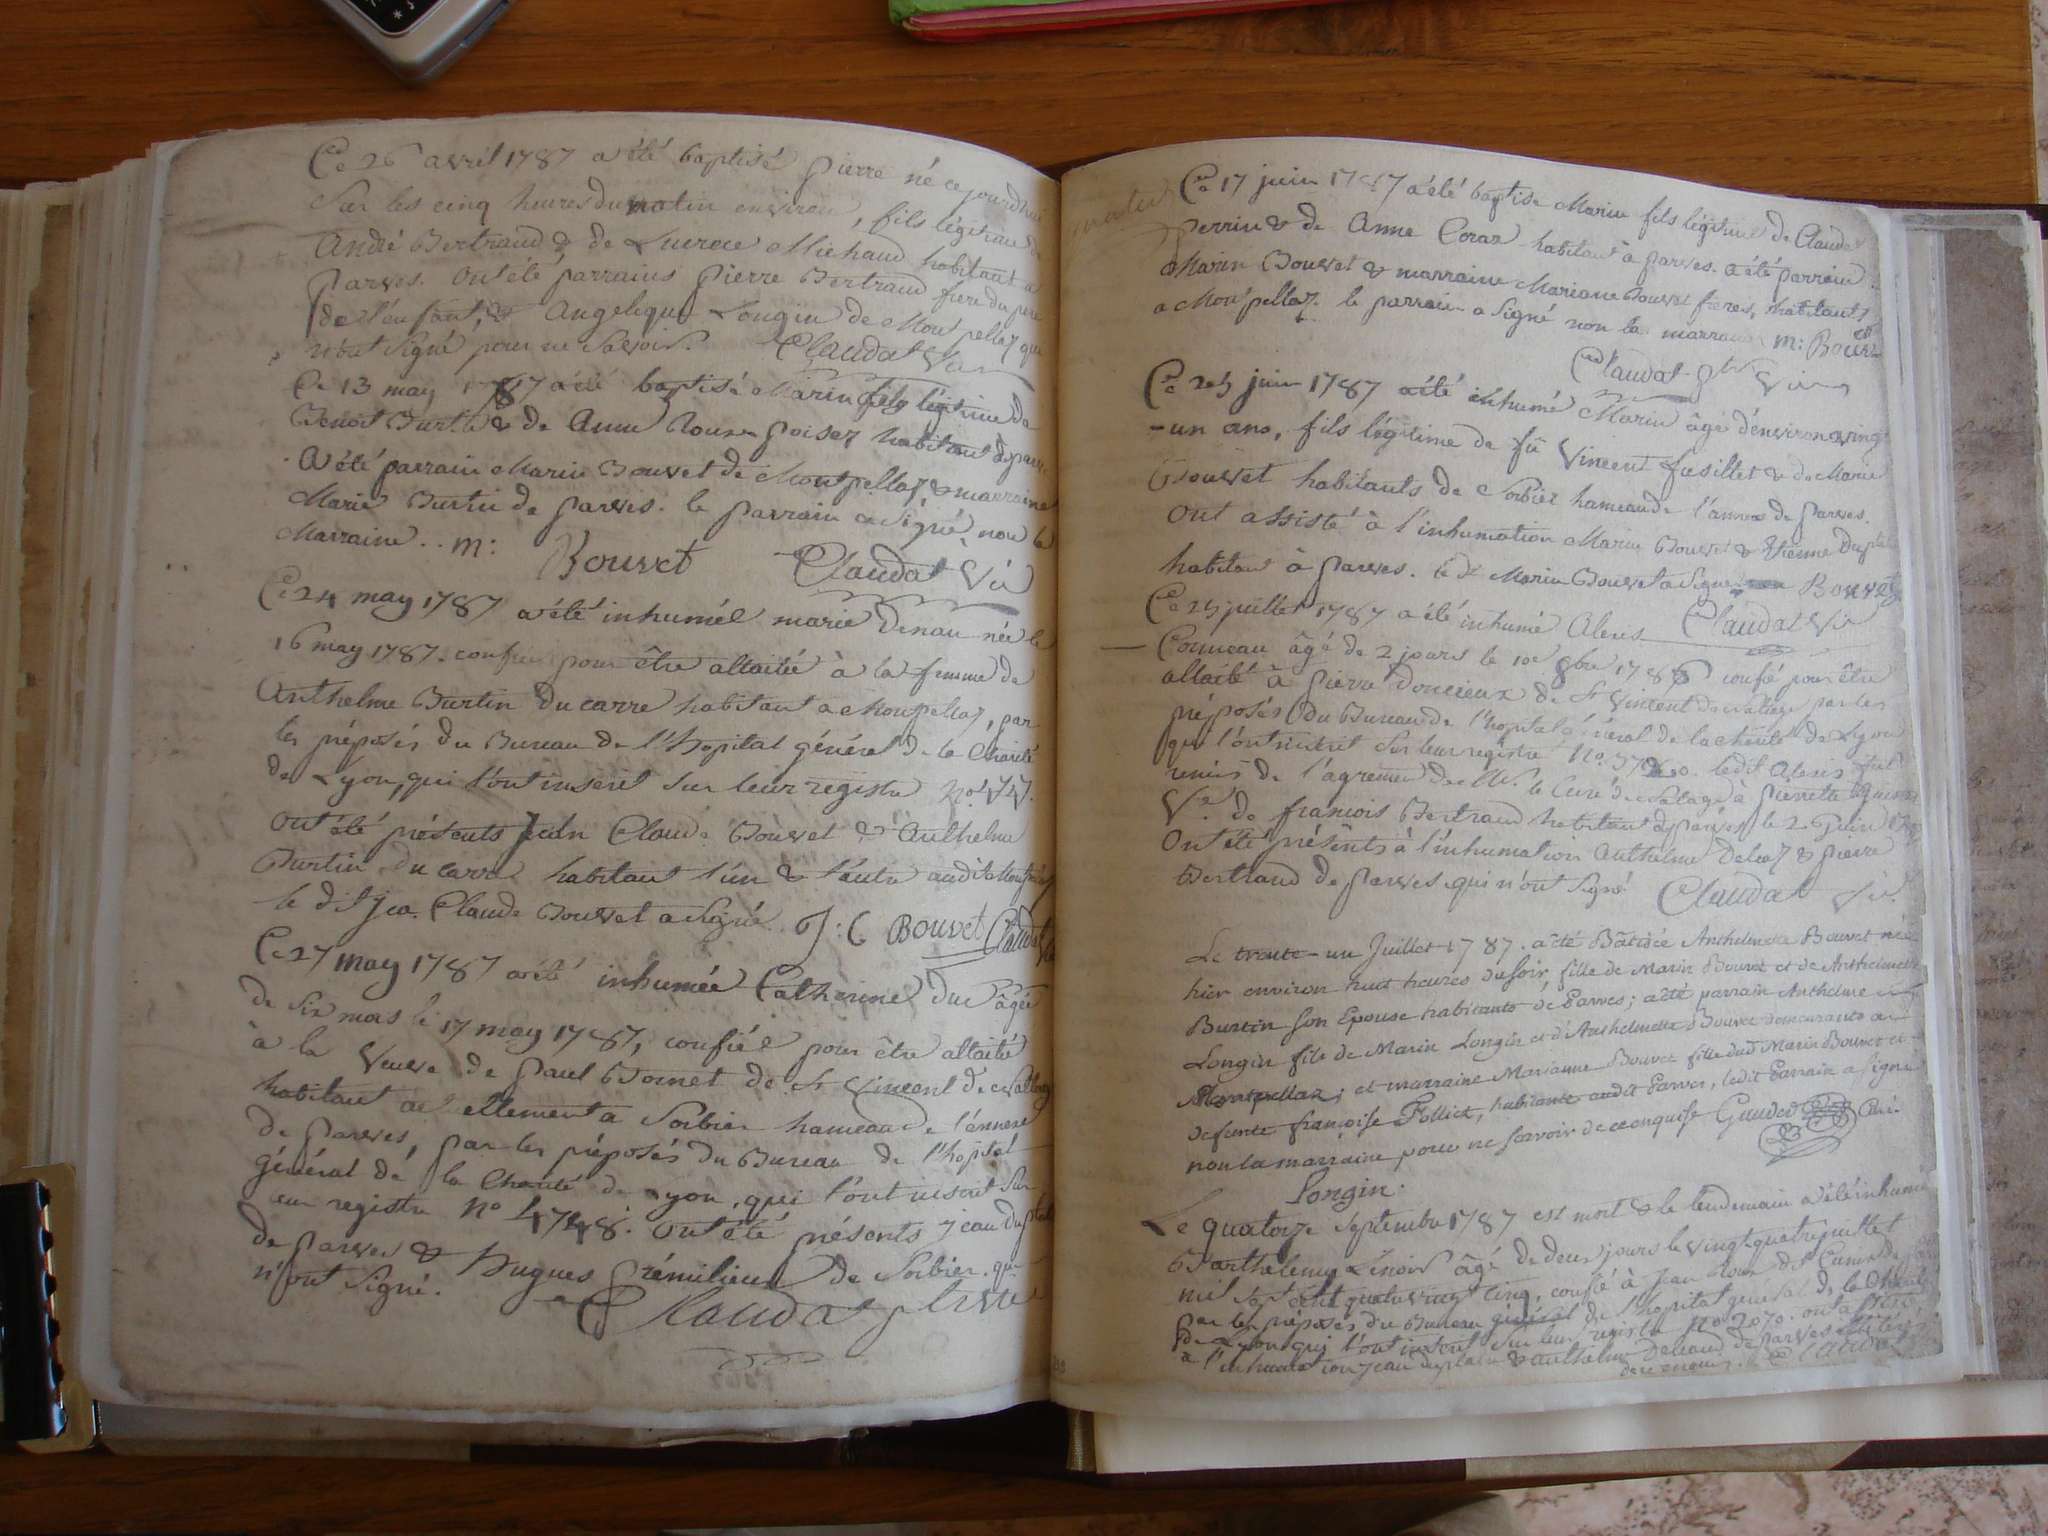 Ce 26 avril 1787 a été baptisé pierre né cejourdhui
Sur les cinq heures du matin environ, fils légitime de
André Bertrand & de Lucrece Michaud habitant a
parves. Ont été parrains pierre Bertrand frere du pere
de l'enfant, & Angelique Longin de Montpellaz qui
n'ont signé pour ne savoir. Claudat
Ce 13 may 1787 a été baptisé Marin fils légitime de
Benoit Burtin & de Anne habitant a parves
A été parrain Marin Bouvet de Montpellaz, & marraine
Marie Burtin de parves. le parrain a signé non la
Marraine. m: Bouvet Claudat Vic
Ce 24 may 1787 a été inhumée marie née le
16 may 1787. confiée pour être allaitée à la femme de
Anthelme Burtin du carre habitant a Montpellaz, par
les préposés du Bureau de l'hopital général de la Charité
de Lyon, qui l'ont inserit sur leur registre no
ont été présents jean Claude Bouvet & Anthelme
Burtin du carre habitant l'un & l'autre audit Montpellaz
le dt Jea. Claude Bouvet a signé. J: C Bouvet Claudat
Ce 27 may 1787 a été inhumée Catherine duc âgée
de six mois le 17 may 1787, confiée pour être allaité
à la Veuve de paul Bornet de St Vincent de
habitant actellement a Sorbier hameau de l'annexe
de parves, par les préposés du Bureau de l'hopital
général de la Charité de Lyon, qui l'ont inserit sur
leur registre no 4748. ont été présents jean
de parves & Hugues prémilieu de Sorbier. qui
n'ont signé. Claudat
Ce 17 juin 1787 a été baptisé Marin fils légitime de Claude
perrin & de Anne Coraz habitant à parves. a été parrain
Marin Bouvet & marraine Mariane Bouvet freres, habitants
a Montpellaz. le parrain a signé non la marraine m: Bouvet
Claudat
Ce juin 1787 a été inhumé Marin âgé d'environ vingt
-un ans, fils légitime de fû Vincent fusillet & de Marie
Bouvet habitants de Sorbier hameau de l'annexe de parves.
Ont assisté à l'inhumation Marin Bouvet & Etienne
habitant à parves. le dt Marin Bouvet a signé Bouvet
Ce juillet 1787 a été inhumé Alexis Claudat Vic
âgé de 2 jours le 10e 8bre 1786 confié pour être
allaité à pierre de St Vincent par les
préposés du Bureau de l'hopital général de la charité de Lyon
qui l'ont inserit sur leur registre No. ledt Alexis fut
remis de l'agrément de Mr. le Curé de à pierrette
Ve. de francois Bertrand habitant a parves le 2 juin
Ont été présents à l'inhumation Anthelme & pierre
Bertrand de parves qui n'ont signé Claudat Vic.
Le trente-un Juillet 1787. a été Bâtisée Anthelmette Bouvet née
hier environ huit heures du soir, fille de Marin Bouvet et de Anthelmette
Burtin son Epouse habitants de Parves; a été parrain Anthelme
Longin fils de Marin Longin et d'Anthelmette Bouvet demeurants a
Montpellaz; et marraine Marianne Bouvet fille dud Marin Bouvet et
defunte françoise Folliet, habitante audit Parves, ledit Parrain a signé
non la marraine pour ne sçavoir de ce enquise curé.
Longin.
Le quatorze Septembre 1787 est mort & le lendemain a été inhumé
Barthelemy Lenoir âgé de deux jours le vingt quatre juillet
mil sept cent quatre vingt cinq, confié à Jean
par les préposés du Bureau général de l'hopital général de la Charité
de Lyon qui l'ont inserit sur leur registre no 2070. ont assisté
à l'inhumation jean & Anthelme de parves
Claudat